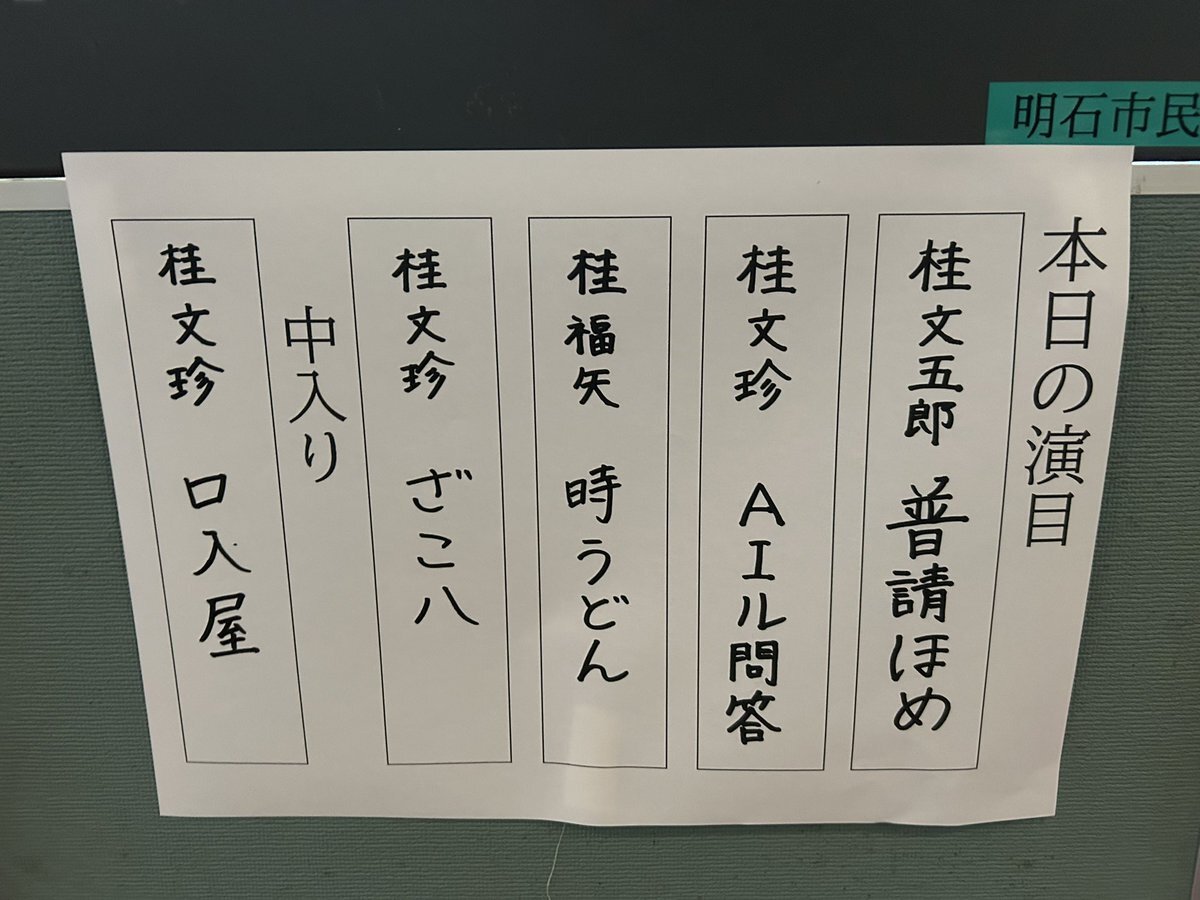 明石市民
本日の演目
桂文五郎 普請ほめ
桂文珍 AIル問答
桂福矢 時うどん
桂文珍 ざこ八
中入り
桂文珍 口入屋